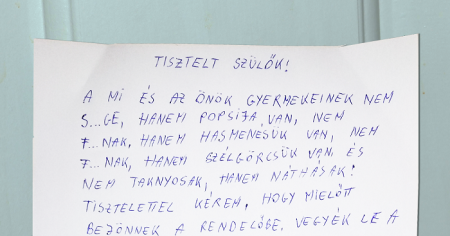 TISZTELT SZÜLŐK!
A MI ÉS AZ ÖNÖK GYERMEKEINEK NEM
S...GE, HANEM POPSIJA VAN, NEM
F...NAK, HANEM HASMENÉSÜK VAN, NEM
F...NAK, HANEM SZÉLGÖRCSÜK VAN ÉS
NEM TAKNYOSAK, HANEM NÁTHÁSAK!
TISZTELETTEL KÉREM, HOGY MIELŐTT
BEJÖNNEK A RENDELŐBE, VEGYÉK LE A